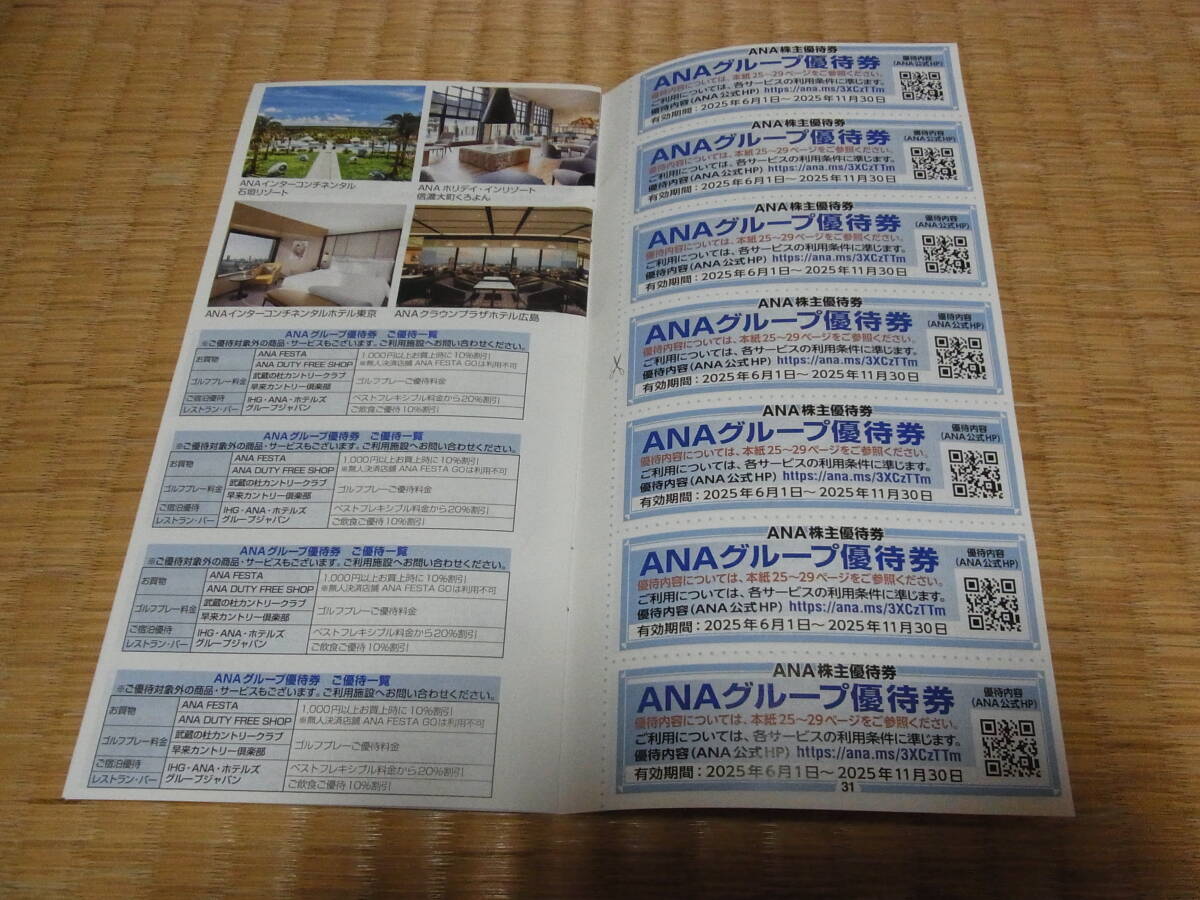 ANAインターコンチネンタル
石垣リゾート
ANAホリデイ・インリゾート
信濃大町くろよん
ANAインターコンチネンタルホテル東京
ANAクラウンプラザホテル広島
ANAグループ優待券　ご優待一覧
※ご優待対象外の商品・サービスもございます。ご利用施設へお問い合わせください。
お買物
ANA FESTA
ANA DUTY FREE SHOP
1,000円以上お買上時に10%割引
※無人決済店舗 ANA FESTA GOは利用不可
ゴルフプレー料金
武蔵の杜カントリークラブ
早来カントリー倶楽部
ゴルフプレーご優待料金
ご宿泊優待
レストラン・バー
IHG・ANA・ホテルズ
グループジャパン
ベストフレキシブル料金から20%割引
ご飲食ご優待10%割引
ANAグループ優待券　ご優待一覧
※ご優待対象外の商品・サービスもございます。ご利用施設へお問い合わせください。
お買物
ANA FESTA
ANA DUTY FREE SHOP
1,000円以上お買上時に10%割引
※無人決済店舗 ANA FESTA GOは利用不可
ゴルフプレー料金
武蔵の杜カントリークラブ
早来カントリー倶楽部
ゴルフプレーご優待料金
ご宿泊優待
レストラン・バー
IHG・ANA・ホテルズ
グループジャパン
ベストフレキシブル料金から20%割引
ご飲食ご優待10%割引
ANAグループ優待券　ご優待一覧
※ご優待対象外の商品・サービスもございます。ご利用施設へお問い合わせください。
お買物
ANA FESTA
ANA DUTY FREE SHOP
1,000円以上お買上時に10%割引
※無人決済店舗 ANA FESTA GOは利用不可
ゴルフプレー料金
武蔵の杜カントリークラブ
早来カントリー倶楽部
ゴルフプレーご優待料金
ご宿泊優待
レストラン・バー
IHG・ANA・ホテルズ
グループジャパン
ベストフレキシブル料金から20%割引
ご飲食ご優待10%割引
ANAグループ優待券　ご優待一覧
※ご優待対象外の商品・サービスもございます。ご利用施設へお問い合わせください。
お買物
ANA FESTA
ANA DUTY FREE SHOP
1,000円以上お買上時に10%割引
※無人決済店舗 ANA FESTA GOは利用不可
ゴルフプレー料金
武蔵の杜カントリークラブ
早来カントリー倶楽部
ゴルフプレーご優待料金
ご宿泊優待
レストラン・バー
IHG・ANA・ホテルズ
グループジャパン
ベストフレキシブル料金から20%割引
ご飲食ご優待10%割引
ANA株主優待券
ANAグループ優待券
優待内容については、本紙25~29ページをご参照ください。
ご利用については、各サービスの利用条件に準じます。
優待内容(ANA公式HP) https://ana.ms/3XCzTTm
有効期間：2025年6月1日～2025年11月30日
優待内容
(ANA公式HP)
ANA株主優待券
ANAグループ優待券
優待内容については、本紙25~29ページをご参照ください。
ご利用については、各サービスの利用条件に準じます。
優待内容(ANA公式HP) https://ana.ms/3XCzTTm
有効期間：2025年6月1日～2025年11月30日
優待内容
(ANA公式HP)
ANA株主優待券
ANAグループ優待券
優待内容については、本紙25~29ページをご参照ください。
ご利用については、各サービスの利用条件に準じます。
優待内容(ANA公式HP) https://ana.ms/3XCzTTm
有効期間：2025年6月1日～2025年11月30日
優待内容
(ANA公式HP)
ANA株主優待券
ANAグループ優待券
優待内容については、本紙25~29ページをご参照ください。
ご利用については、各サービスの利用条件に準じます。
優待内容(ANA公式HP) https://ana.ms/3XCzTTm
有効期間：2025年6月1日～2025年11月30日
優待内容
(ANA公式HP)
ANA株主優待券
ANAグループ優待券
優待内容については、本紙25~29ページをご参照ください。
ご利用については、各サービスの利用条件に準じます。
優待内容(ANA公式HP) https://ana.ms/3XCzTTm
有効期間：2025年6月1日～2025年11月30日
優待内容
(ANA公式HP)
ANA株主優待券
ANAグループ優待券
優待内容については、本紙25~29ページをご参照ください。
ご利用については、各サービスの利用条件に準じます。
優待内容(ANA公式HP) https://ana.ms/3XCzTTm
有効期間：2025年6月1日～2025年11月30日
優待内容
(ANA公式HP)
ANA株主優待券
ANAグループ優待券
優待内容については、本紙25~29ページをご参照ください。
ご利用については、各サービスの利用条件に準じます。
優待内容(ANA公式HP) https://ana.ms/3XCzTTm
有効期間：2025年6月1日～2025年11月30日
優待内容
(ANA公式HP)
31